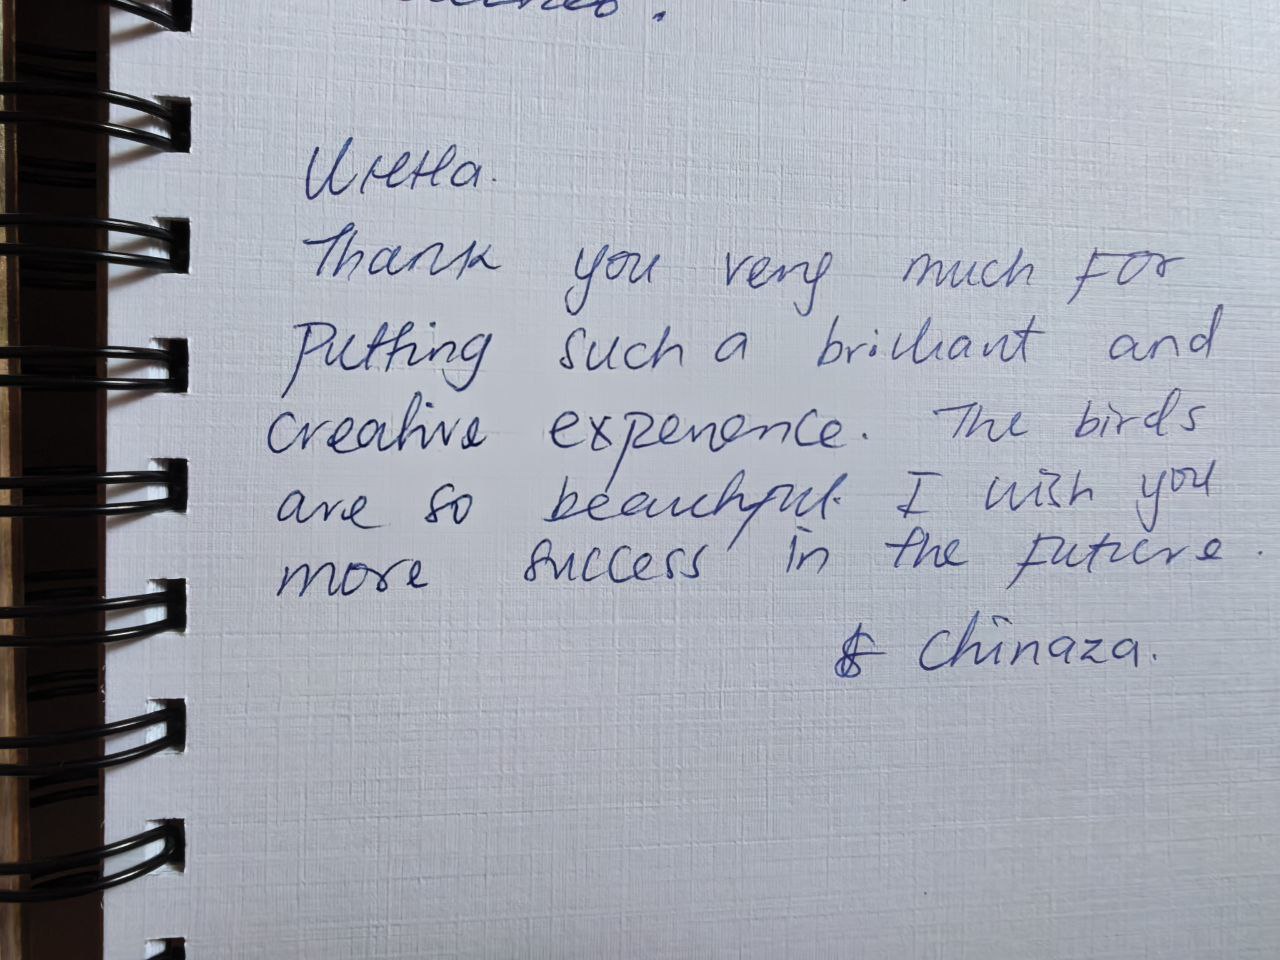 Инна.
Thank you very much For
Putting such a brilliant and
creative experience. The birds
are so beautiful. I wish you
more success in the future.
Chinaza.